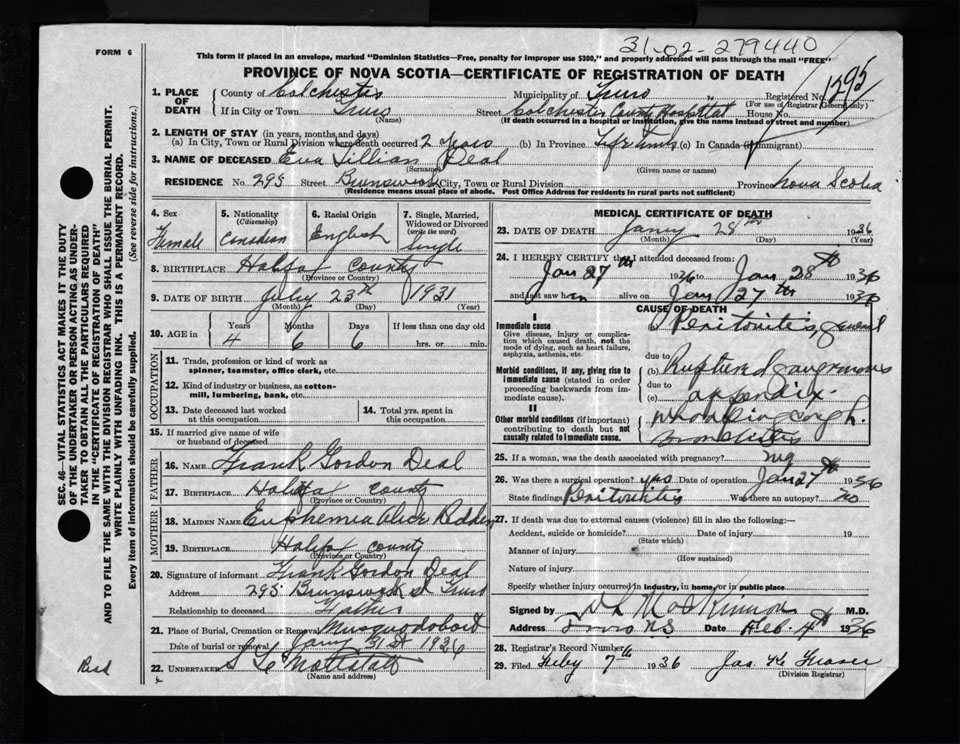 31-02-279440
FORM 6
This form if placed in an envelope, marked "Dominion Statistics—Free, penalty for improper use $300," and properly addressed will pass through the mail "FREE"
PROVINCE OF NOVA SCOTIA—CERTIFICATE OF REGISTRATION OF DEATH
1295
1. PLACE OF DEATH County of Colchester Municipality of Truro Registered No.
(For use of Registrar General only)
If in City or Town Truro Street Colchester County Hospital House No.
(Name) (If death occurred in a hospital or institution, give the name instead of street and number)
2. LENGTH OF STAY (in years, months, and days)
(a) In City, Town or Rural Division where death occurred 2 years (b) In Province Lifetime (c) In Canada (if immigrant)
3. NAME OF DECEASED Eva Lillian Deal
(Surname) (Given name or names)
RESIDENCE No. 295 Street Brunswick City, Town or Rural Division Province Nova Scotia
(Residence means usual place of abode. Post Office Address for residents in rural parts not sufficient)
4. Sex Female
5. Nationality (Citizenship) Canadian
6. Racial Origin English
7. Single, Married, Widowed or Divorced (write the word) Single
8. BIRTHPLACE Halifax County
(Province or Country)
9. DATE OF BIRTH July 23th 1931
(Month) (Day) (Year)
10. AGE in Years Months Days If less than one day old
4 6 6 hrs. or min.
OCCUPATION
11. Trade, profession or kind of work as spinner, teamster, office clerk, etc.
12. Kind of industry or business, as cotton-mill, lumbering, bank, etc.
13. Date deceased last worked at this occupation
14. Total yrs. spent in this occupation
15. If married give name of wife or husband of deceased
FATHER
16. NAME Frank Gordon Deal
17. BIRTHPLACE Halifax County
(Province or Country)
MOTHER
18. MAIDEN NAME Euphemia Alice Redden
19. BIRTHPLACE Halifax County
(Province or Country)
20. Signature of informant Frank Gordon Deal
Address 295 Brunswick St Truro
Relationship to deceased Father
21. Place of Burial, Cremation or Removal Musquodoboit
Date of burial or removal Jany 31st 1936
22. UNDERTAKER
(Name and address)
MEDICAL CERTIFICATE OF DEATH
23. DATE OF DEATH Jany 28th 1936
(Month) (Day) (Year)
24. I HEREBY CERTIFY that I attended deceased from:
Jan 27th 1936 to Jan 28th 1936
and last saw h alive on Jan 27th 1936
CAUSE OF DEATH
I
Immediate cause
Give disease, injury or complication which caused death, not the mode of dying, such as heart failure, asphyxia, asthenia, etc.
Peritonitis, general
due to
Morbid conditions, if any, giving rise to immediate cause (stated in order proceeding backwards from immediate cause).
(b) Ruptured Gangrenous
due to
(c) appendix
II
Other morbid conditions (if important) contributing to death but not causally related to immediate cause.
Whooping Cough.
Bronchitis
25. If a woman, was the death associated with pregnancy?
26. Was there a surgical operation? yes Date of operation Jan 27th 1936
State findings Peritonitis Was there an autopsy? no
27. If death was due to external causes (violence) fill in also the following:—
Accident, suicide or homicide? Date of injury 19
(State which)
Manner of injury
(How sustained)
Nature of injury
Specify whether injury occurred in industry, in home, or in public place
Signed by M.D.
Address Truro NS Date Feb. 4th 1936
28. Registrar's Record Number
29. Filed Feby 7th 1936 Jas. K. Fraser
(Division Registrar)
SEC. 46—VITAL STATISTICS ACT MAKES IT THE DUTY OF THE UNDERTAKER OR PERSON ACTING AS UNDERTAKER TO OBTAIN ALL THE PARTICULARS REQUIRED IN THE "CERTIFICATE OF REGISTRATION OF DEATH" AND TO FILE THE SAME WITH THE DIVISION REGISTRAR WHO SHALL ISSUE THE BURIAL PERMIT.
WRITE PLAINLY WITH UNFADING INK. THIS IS A PERMANENT RECORD.
Every item of information should be carefully supplied. (See reverse side for instructions.)